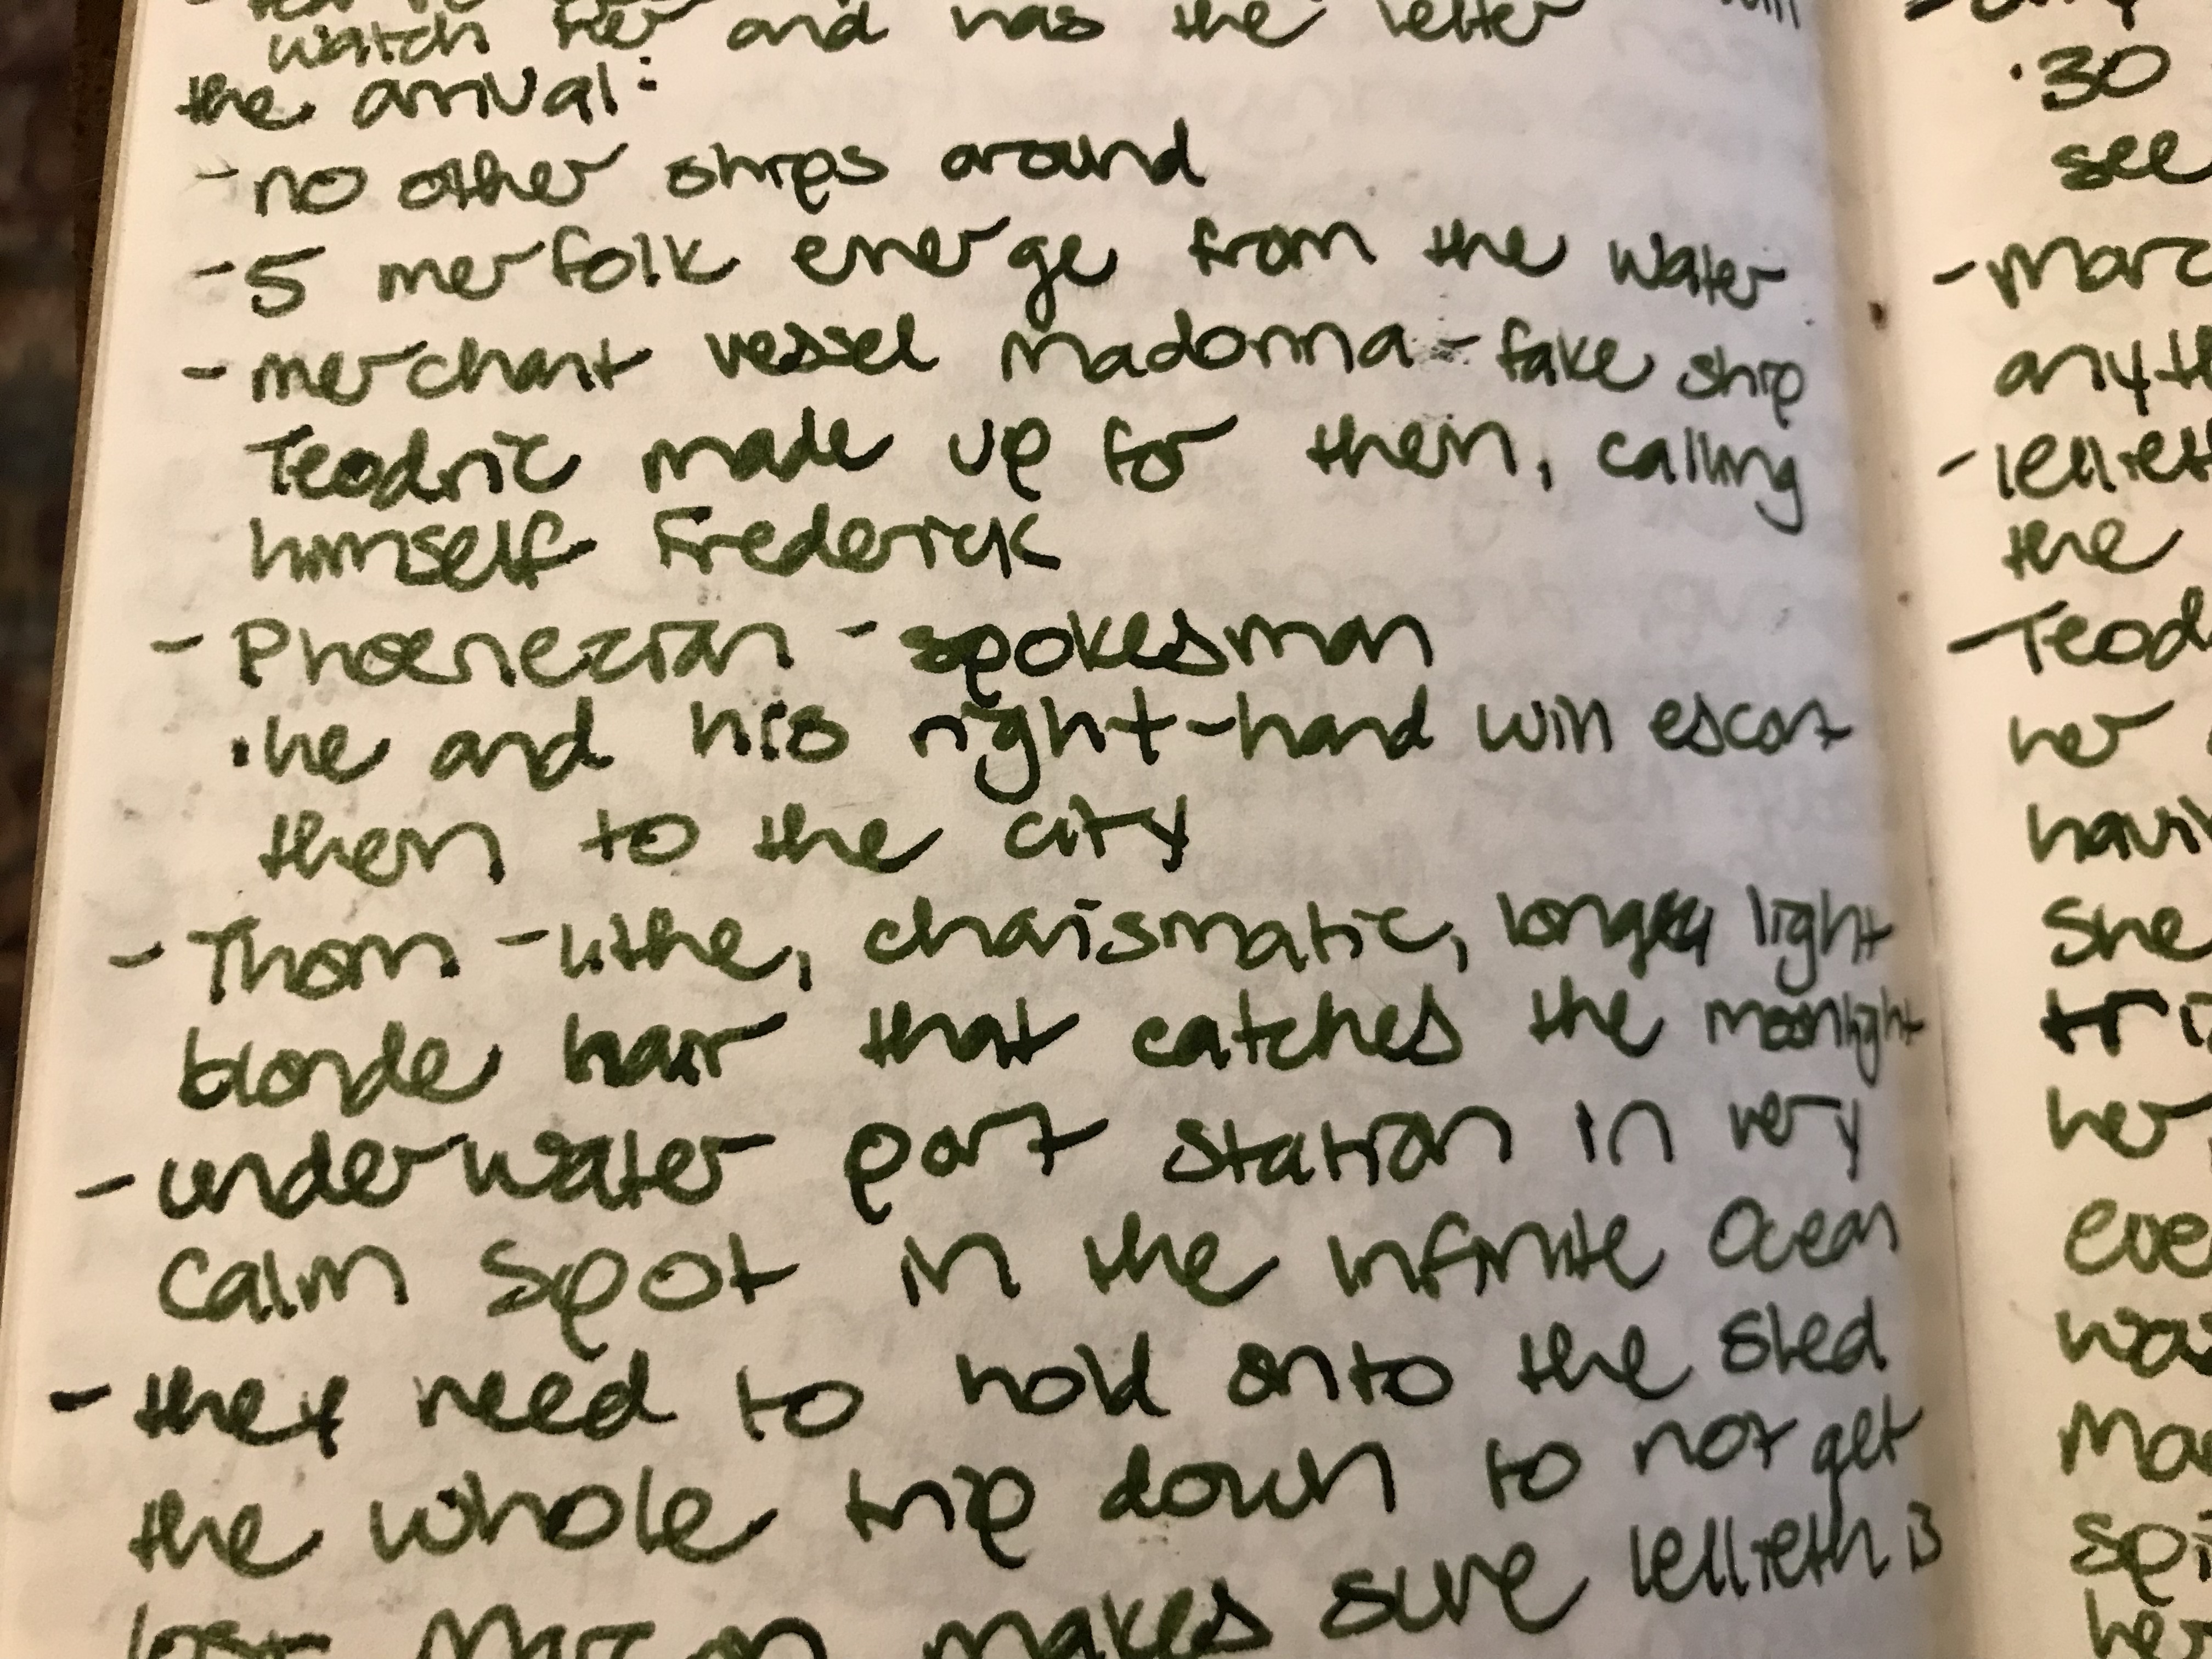 watch her and has the letter
the arrival:
- no other ships around
- 5 merfolk emerge from the water
- merchant vessel Madonna - fake ship
Teodric made up for them, calling
himself Frederick
- Phoenezian - spokesman
· he and his right-hand will escort
them to the city
- Thom - lithe, charismatic, long light
blonde hair that catches the moonlight
- underwater port station in very
calm spot in the Infinite Ocean
- they need to hold onto the sled
the whole trip down to not get
lost. makes sure lellieth is
·30
see
- Marc
anyth
- lelliet
the
- Teod
her
havi
she
tri
her
eve
was
Ma
spi
her